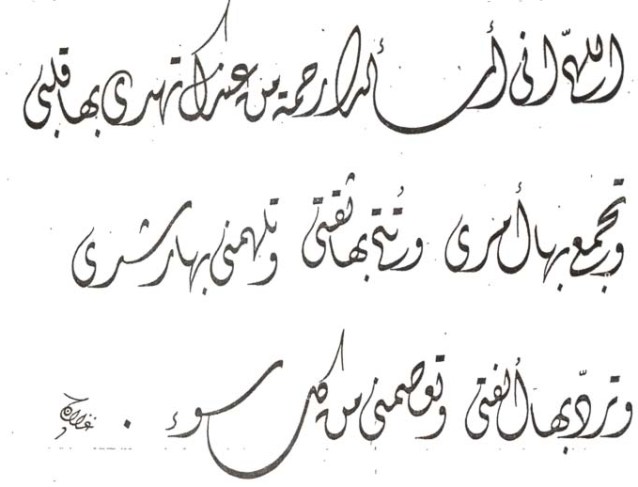 اللهم انى أسألك رحمة من عندك تهدى بها قلبى
وتجمع بها أمرى بها ثقتى وتلهمنى بها رشدى
وتردّ بها ألفتى وتعصمنى من كل سوء .